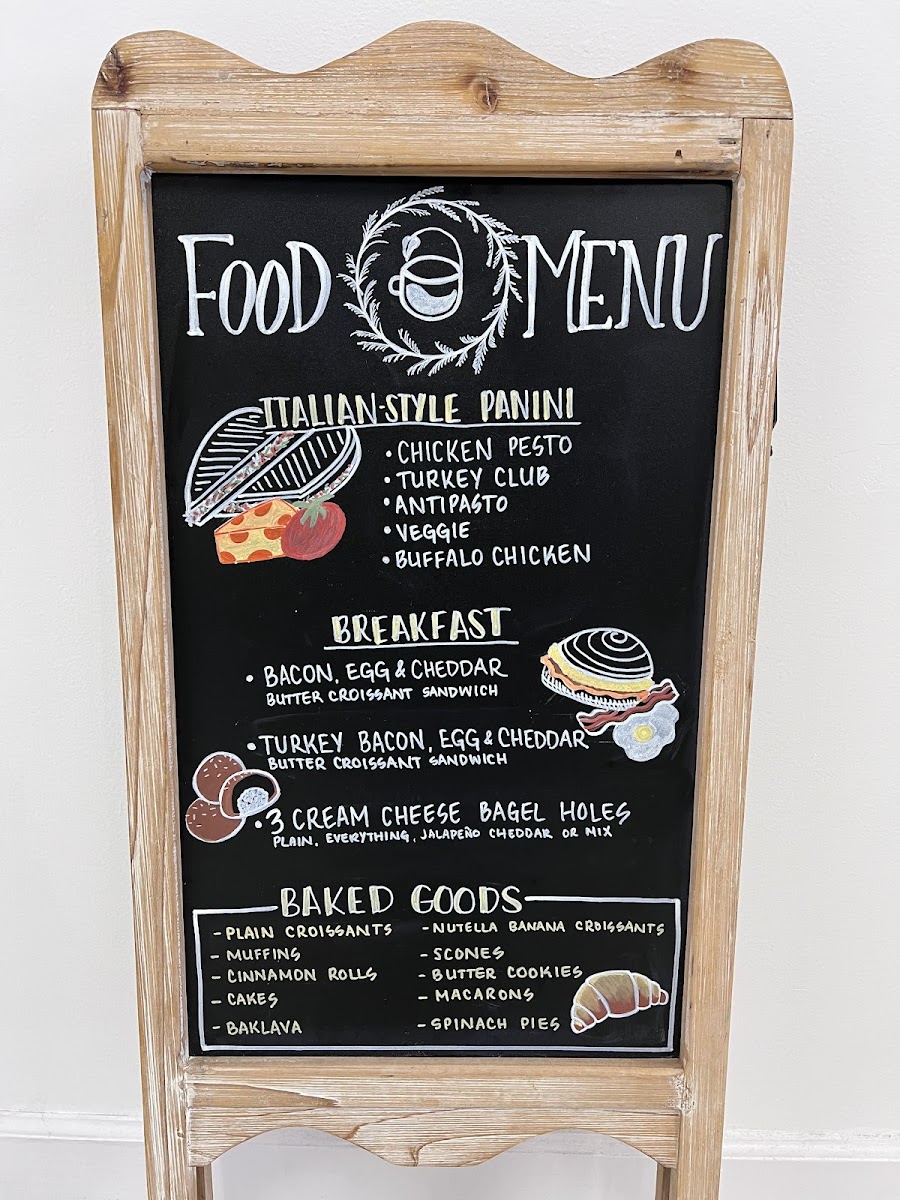 FOOD MENU
ITALIAN-STYLE PANINI
• CHICKEN PESTO
• TURKEY CLUB
• ANTIPASTO
• VEGGIE
• BUFFALO CHICKEN
BREAKFAST
• BACON, EGG & CHEDDAR
BUTTER CROISSANT SANDWICH
• TURKEY BACON, EGG & CHEDDAR
BUTTER CROISSANT SANDWICH
• 3 CREAM CHEESE BAGEL HOLES
PLAIN, EVERYTHING, JALAPEÑO CHEDDAR OR MIX
BAKED GOODS
- PLAIN CROISSANTS
- MUFFINS
- CINNAMON ROLLS
- CAKES
- BAKLAVA
- NUTELLA BANANA CROISSANTS
- SCONES
- BUTTER COOKIES
- MACARONS
- SPINACH PIES